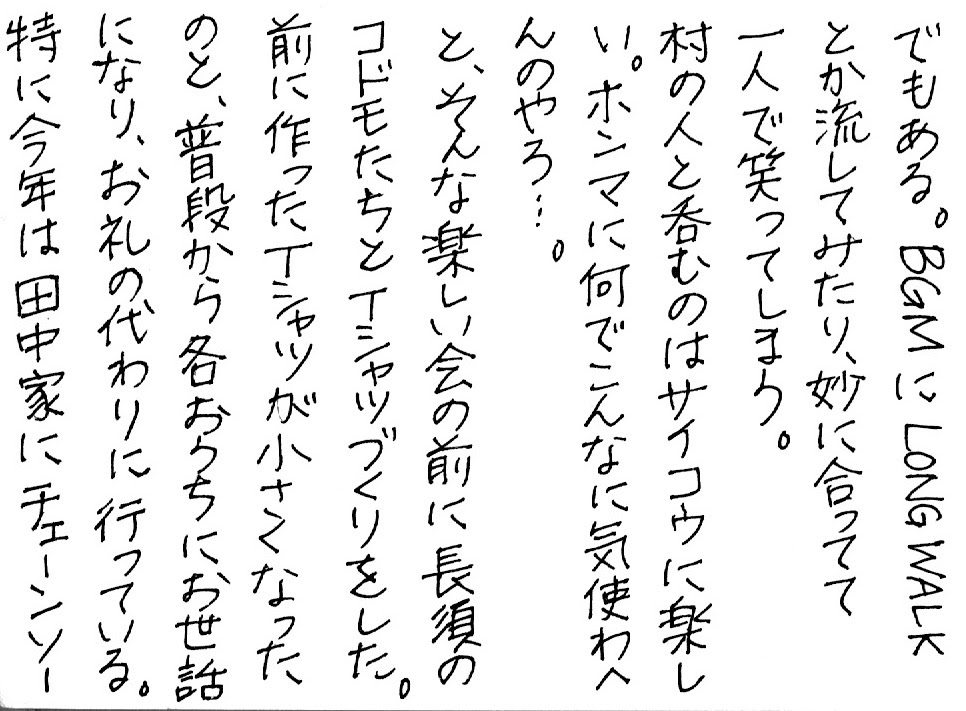 でもある。BGMにLONG WALK
とか流してみたり、妙に合ってて
一人で笑ってしまう。
村の人と呑むのはサイコウに楽し
い。ホンマに何でこんなに気使わへ
んのやろ…。
と、そんな楽しい会の前に長須の
コドモたちとTシャツづくりをした。
前に作ったTシャツが小さくなった
のと、普段から各おうちにお世話
になり、お礼の代わりに行っている。
特に今年は田中家にチェーンソー